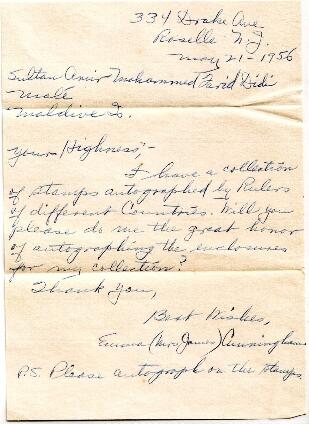 334 Drake Ave.
Roselle N.J.
May 21-1956
Sultan Amir Mohammed Farid Didi
Male
Maldive Is.
Your Highness,-
I have a collection
of stamps autographed by Rulers
of different Countries. Will you
please do me the great honor
of autographing the enclosures
for my collection?
Thank You,
Best Wishes,
Emma (Mrs James) Cunningham
P.S. Please autograph on the stamps.